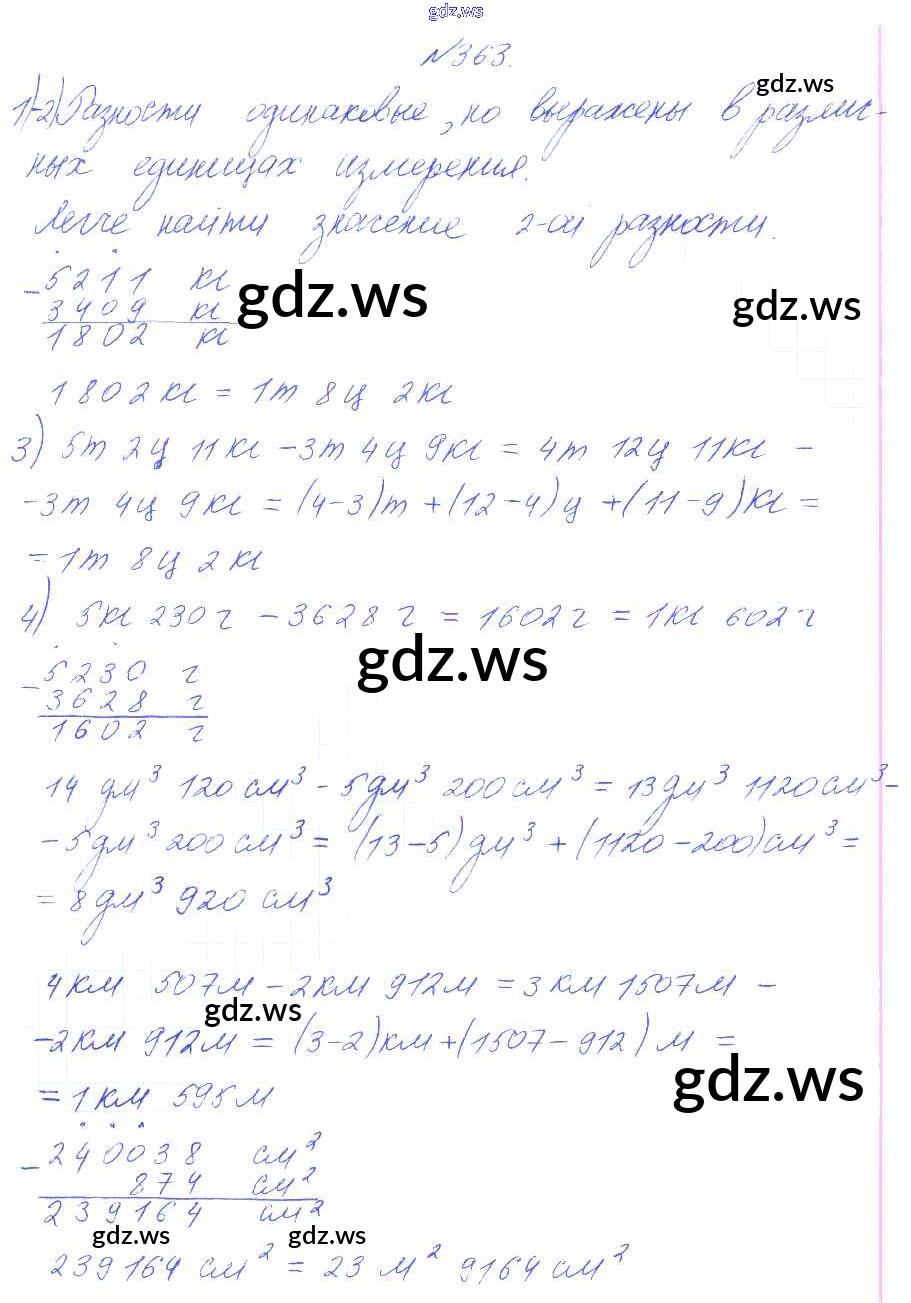 gdz.ws
№363.
gdz.ws
1)-2) Разности одинаковые, но выражены в различ-
ных единицах измерения.
Легче найти значение 2-ой разности.
- 5211 кг
3409 кг
gdz.ws
gdz.ws
1802 кг
1802 кг = 1т 8ц 2кг
3) 5т 2ц 11кг - 3т 4ц 9кг = 4т 12ц 11кг -
- 3т 4ц 9кг = (4-3)т + (12-4)ц + (11-9)кг =
= 1т 8ц 2кг
4) 5кг 230г - 3628г = 1602г = 1кг 602г
gdz.ws
- 5230 г
3628 г
1602 г
14 дм³ 120 см³ - 5дм³ 200 см³ = 13дм³ 1120см³ -
- 5дм³ 200 см³ = (13-5)дм³ + (1120-200)см³ =
= 8дм³ 920 см³
4км 507м - 2км 912м = 3км 1507м -
gdz.ws
- 2км 912м = (3-2)км + (1507-912)м =
gdz.ws
= 1км 595м
- 240038 см²
874 см²
239164 см²
gdz.ws gdz.ws
239164 см² = 23 м² 9164 см²